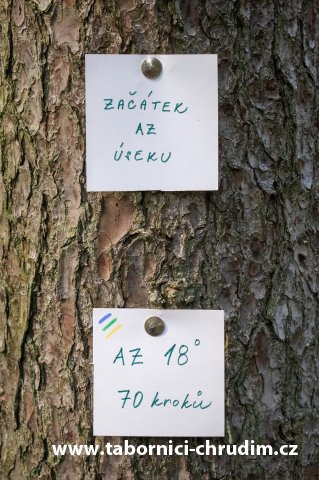 ZAČÁTEK
AZ
ÚSEKU
AZ 18°
70 kroků
www.tabornici-chrudim.cz